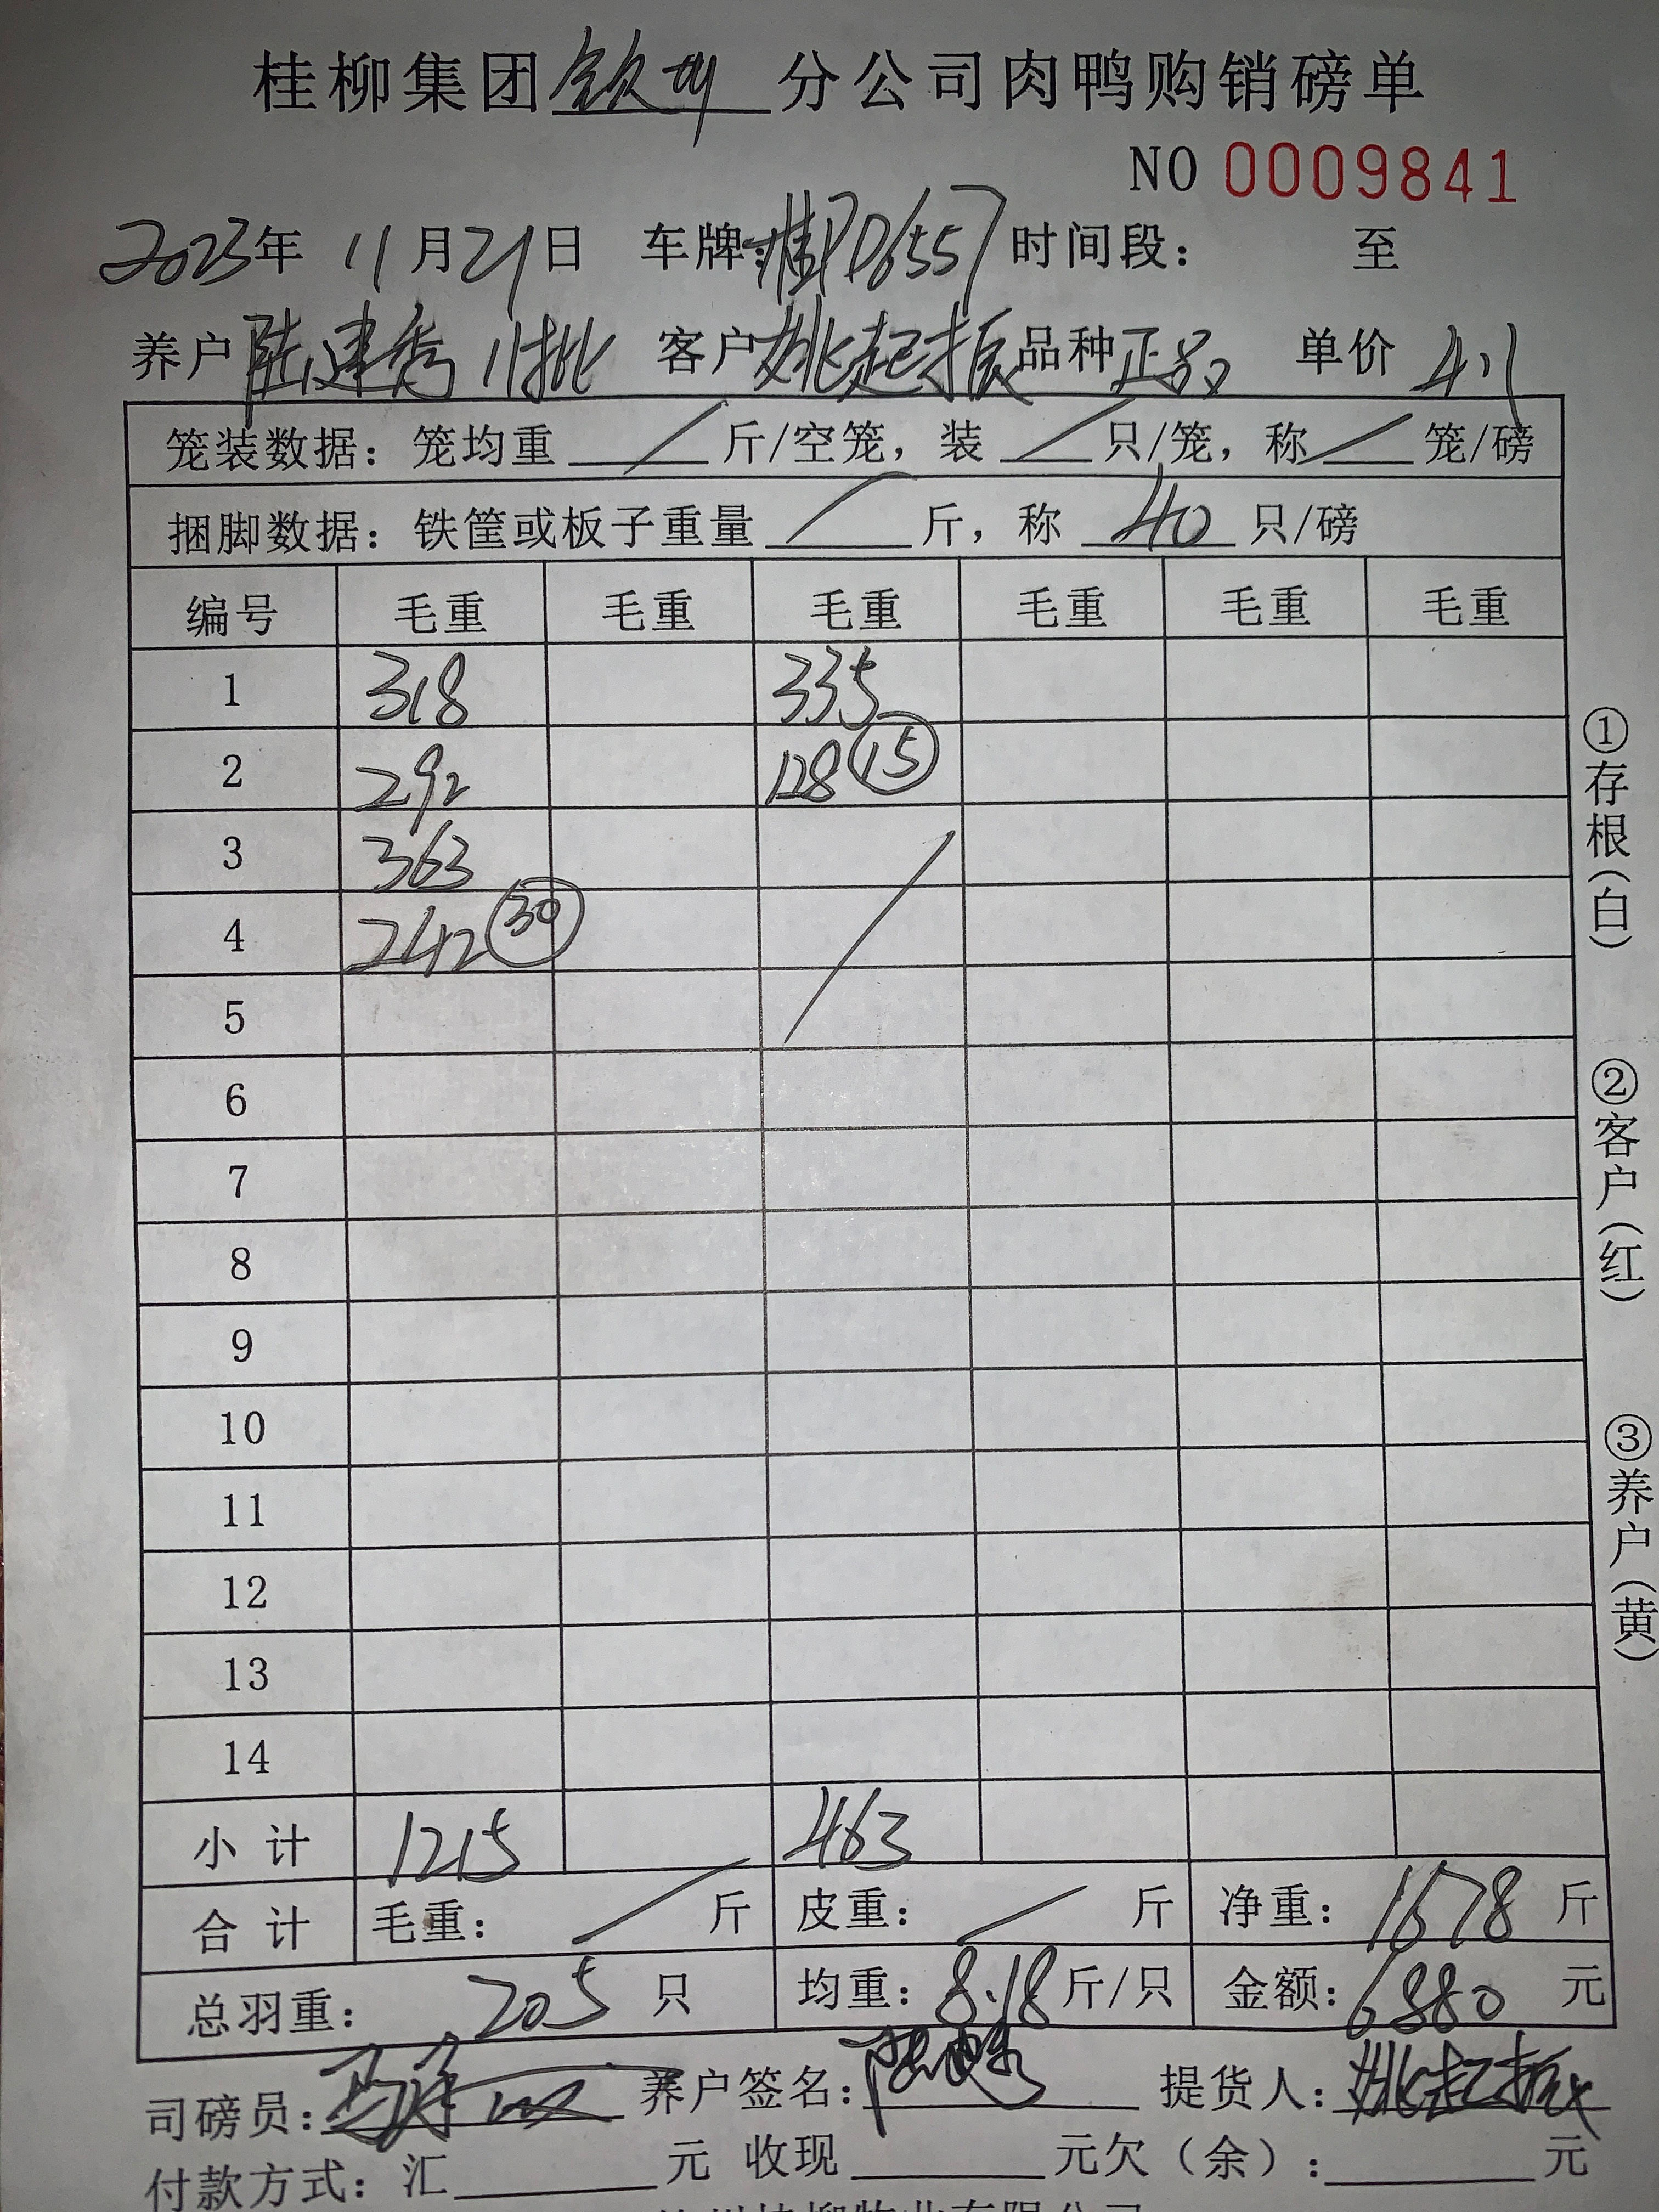 桂柳集团钦州分公司肉鸭购销磅单
NO 0009841
2023年 11月21日 车牌:桂PD6557 时间段: 至
养户 陆建秀 11批 客户 姚起振 品种 正品 单价 4.1
笼装数据: 笼均重 / 斤/空笼, 装 / 只/笼, 称 / 笼/磅
捆脚数据: 铁筐或板子重量 / 斤, 称 40 只/磅
编号 毛重 毛重 毛重 毛重 毛重 毛重
1 318 335
2 292 128 ⑮
3 363
4 242 ㉚
5
6
7
8
9
10
11
12
13
14
小计 1215 463
合计 毛重: / 斤 皮重: / 斤 净重: 1678 斤
总羽重: 205 只 均重: 8.18 斤/只 金额: 6880 元
司磅员: 养户签名: 提货人: 姚起振
付款方式: 汇 元 收现 元欠(余): 元
①存根(白)
②客户(红)
③养户(黄)